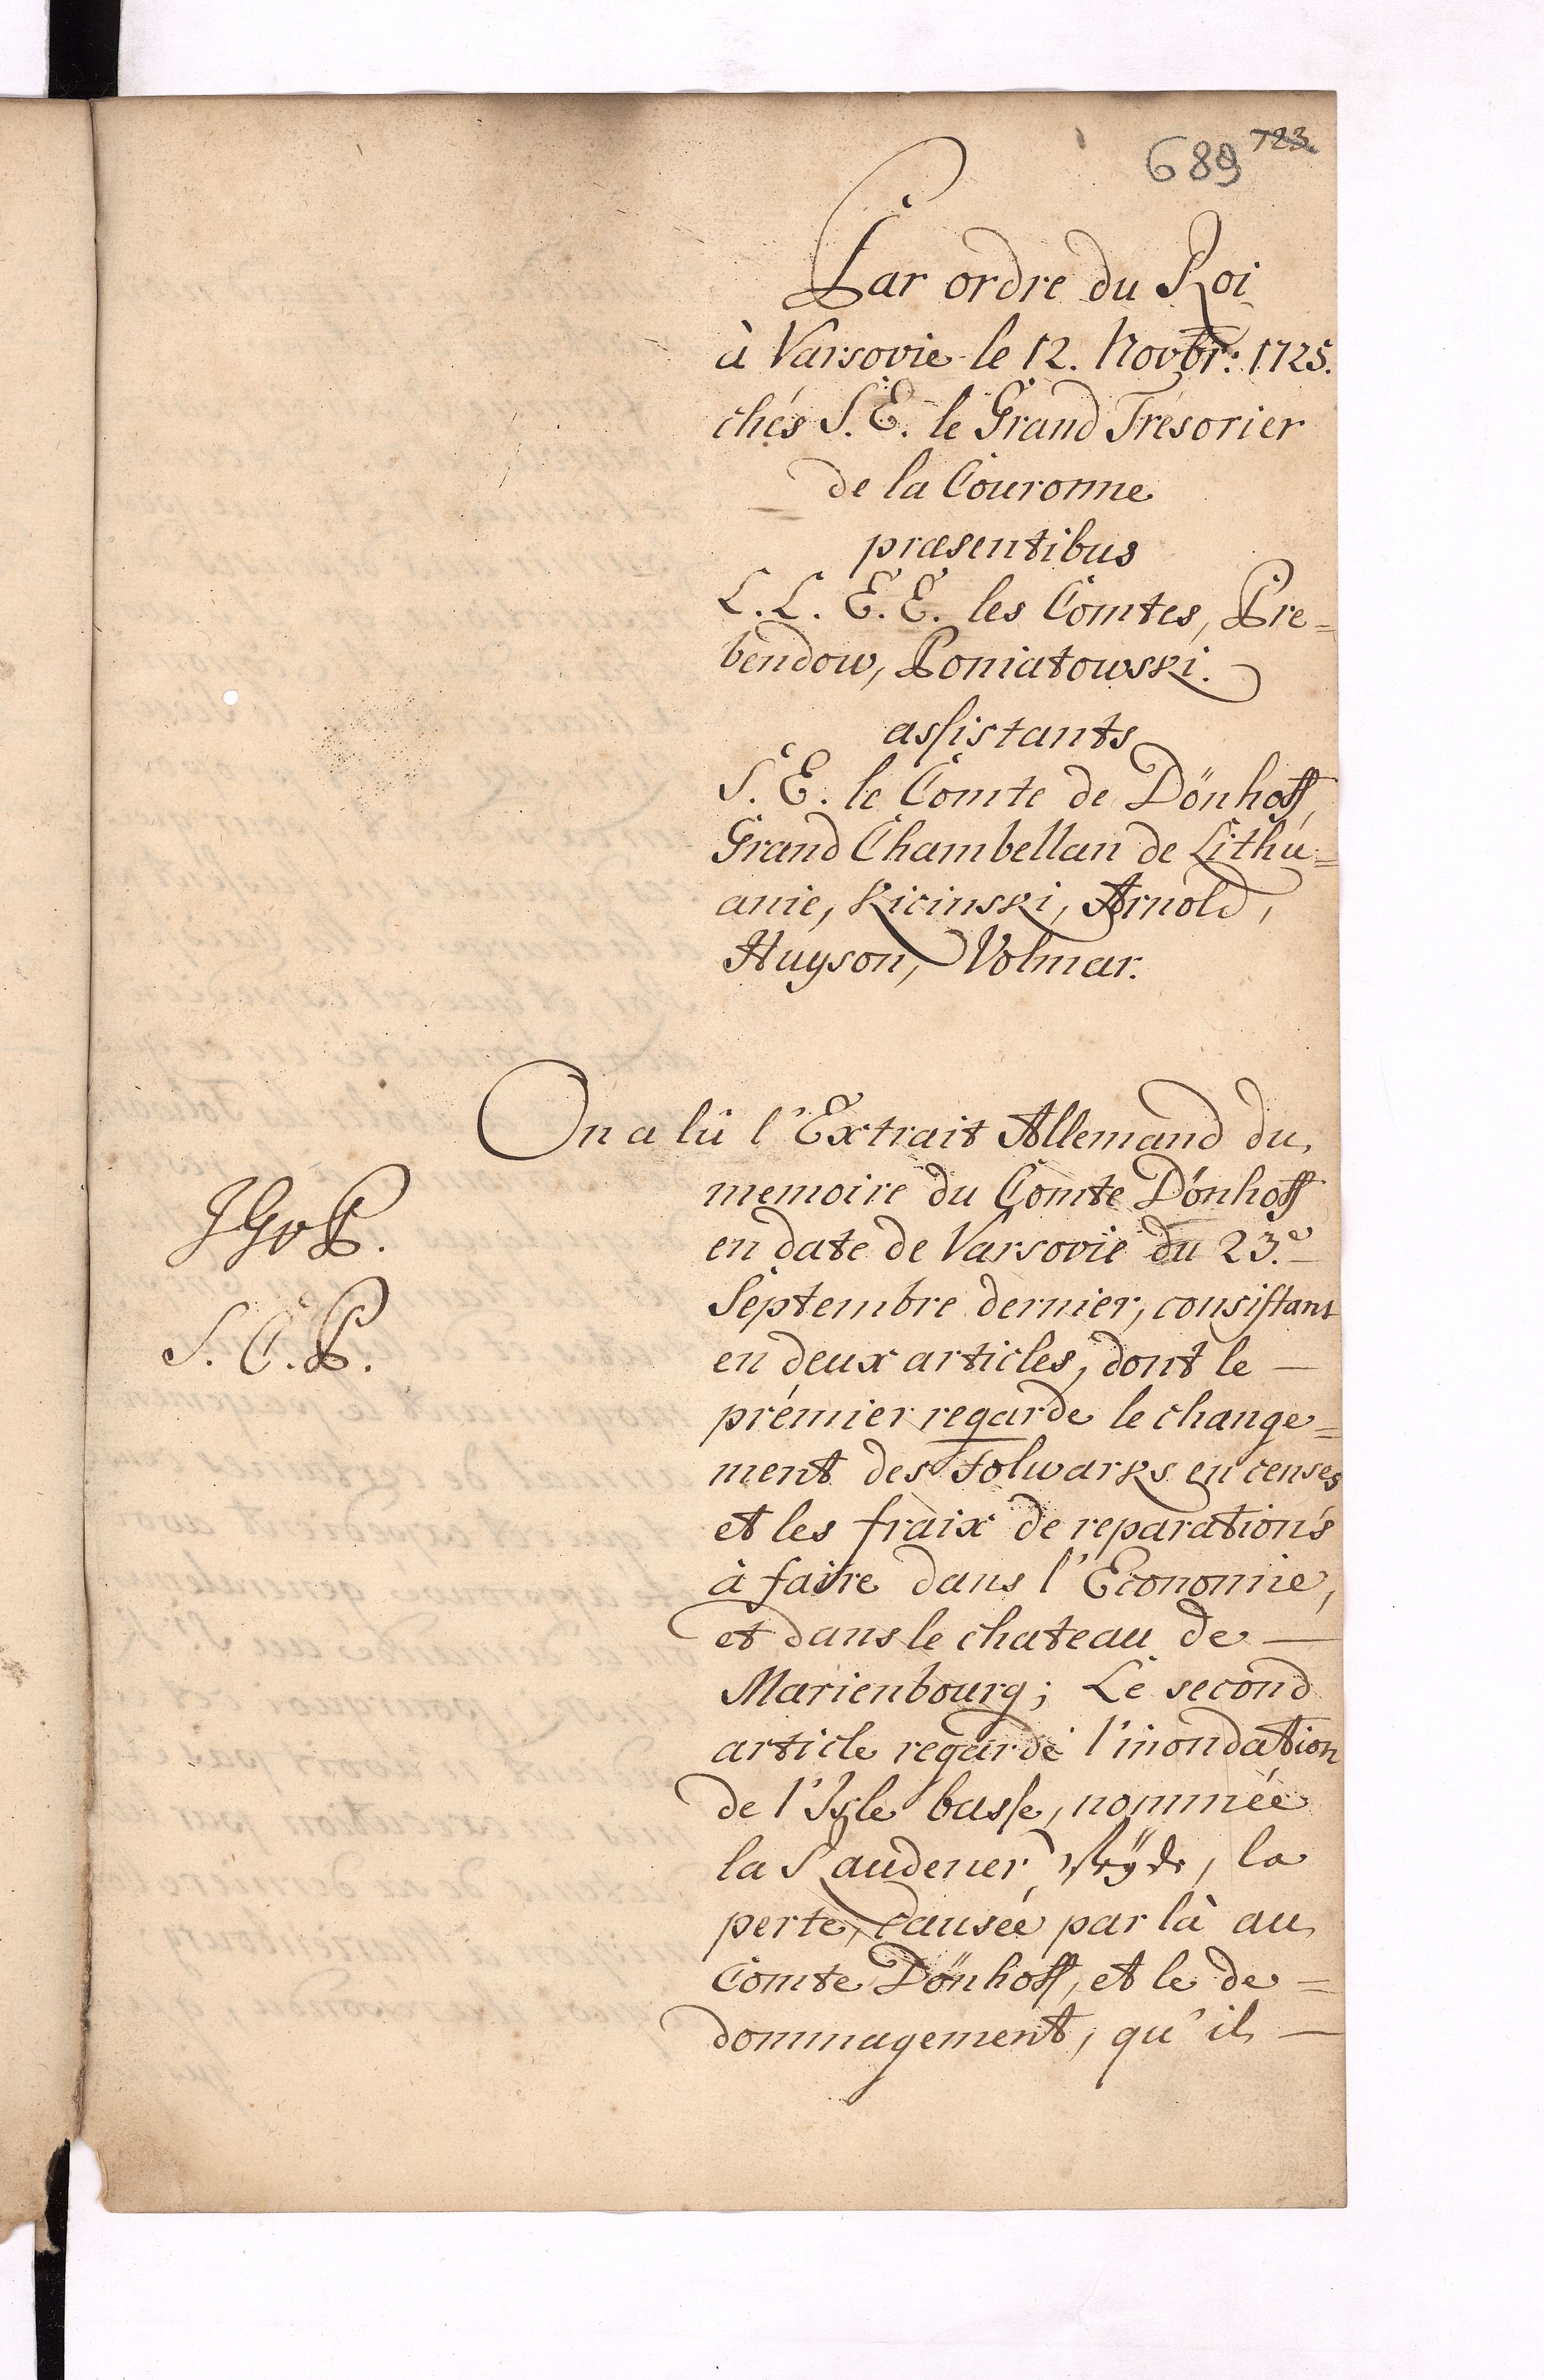 689 723
Par ordre du Roi
à Varsovie le 12. Novbr: 1725.
chés S. E. le Grand Trésorier
de la Couronne
præsentibus
L. L. E. E. les Comtes, Pre=
bendow, Poniatowski.
assistants
S. E. le Comte de Dönhoff,
Grand Chambellan de Lithu=
anie, Kicinski, Arnold,
Huyson, Volmar.
On a lû l'Extrait Allemand du
memoire du Comte Dönhoff
en date de Varsovie du 23.e
Septembre dernier, consistant
en deux articles, dont le —
prémier regarde le change=
ment des Folwarks en censes
et les fraix de reparations
à faire dans l'Economie,
et dans le chateau de —
Marienbourg; Le second
article regarde l'inondation
de l'Isle basse, nommée
la Kaudener, la
perte, causée par là au
Comte Dönhoff, et le de=
dommagement, qu'il —
JGvP.
S. C. P.